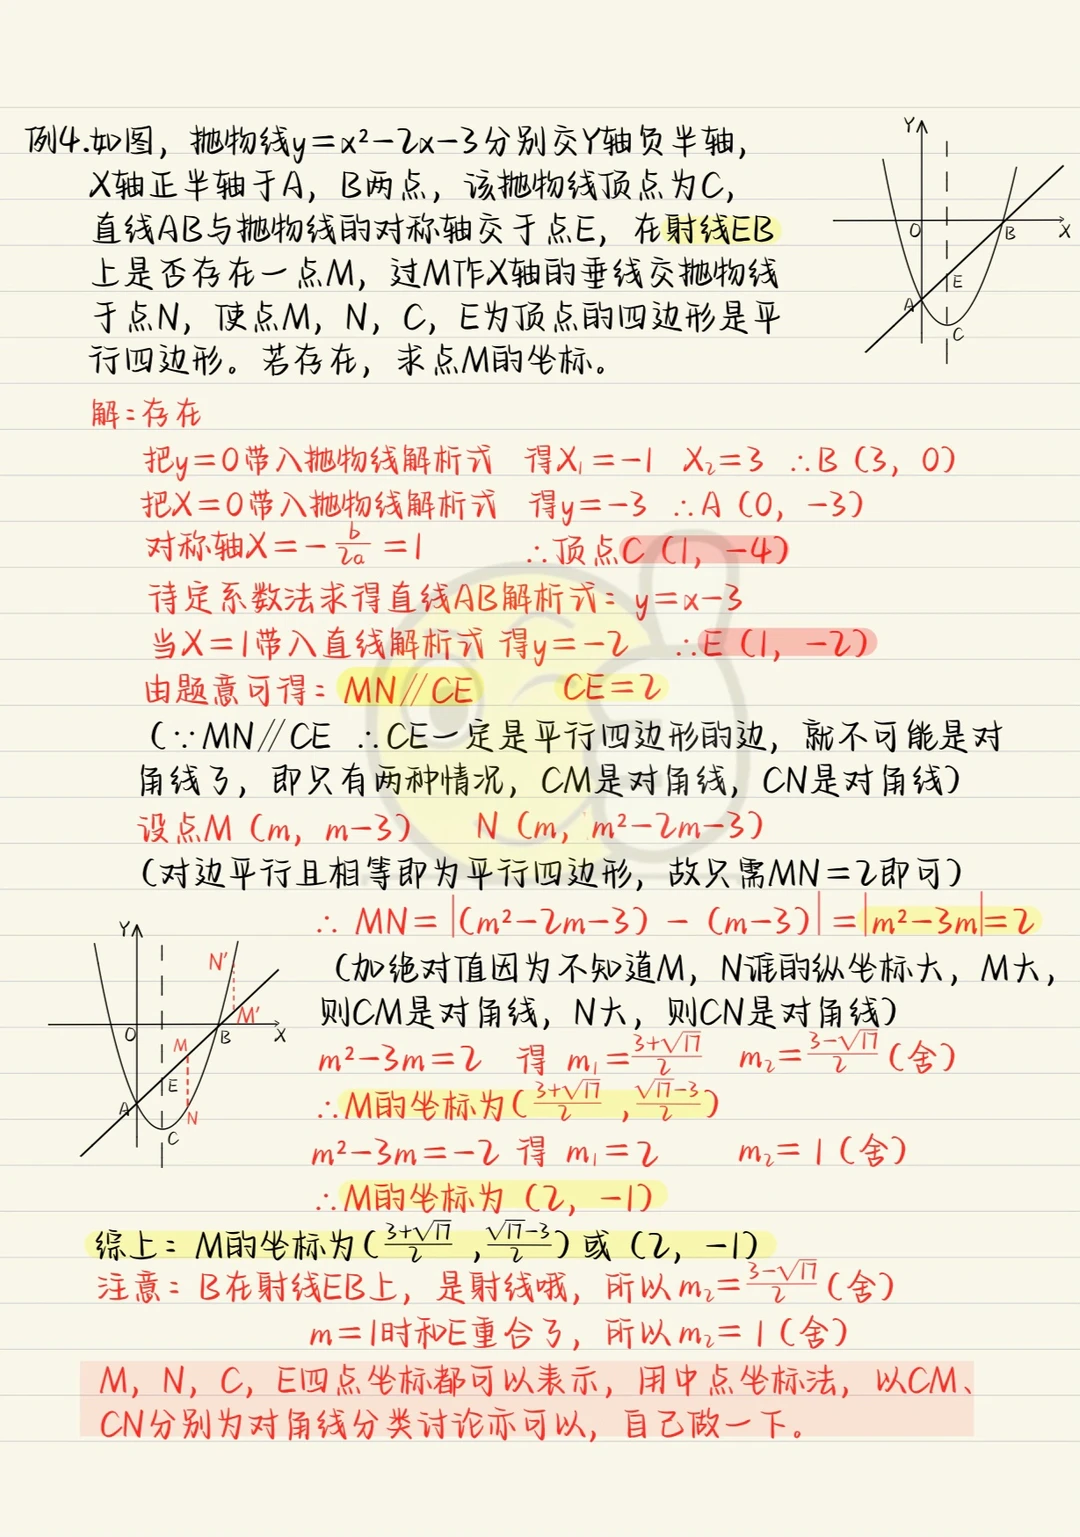 例4.如图，抛物线y=x²-2x-3分别交Y轴负半轴，
X轴正半轴于A，B两点，该抛物线顶点为C，
直线AB与抛物线的对称轴交于点E，在射线EB
上是否存在一点M，过M作X轴的垂线交抛物线
于点N，使点M，N，C，E为顶点的四边形是平
行四边形。若存在，求点M的坐标。
Y
O
B
X
E
A
C
解：存在
把y=0带入抛物线解析式 得X₁=-1 X₂=3 ∴B（3，0）
把X=0带入抛物线解析式 得y=-3 ∴A（0，-3）
对称轴X=-b/2a=1 ∴顶点C（1，-4）
待定系数法求得直线AB解析式：y=x-3
当X=1带入直线解析式 得y=-2 ∴E（1，-2）
由题意可得：MN∥CE CE=2
（∵MN∥CE ∴CE一定是平行四边形的边，就不可能是对
角线了，即只有两种情况，CM是对角线，CN是对角线）
设点M（m，m-3） N（m，m²-2m-3）
（对边平行且相等即为平行四边形，故只需MN=2即可）
∴ MN=|（m²-2m-3）-（m-3）|=|m²-3m|=2
（加绝对值因为不知道M，N谁的纵坐标大，M大，
则CM是对角线，N大，则CN是对角线）
m²-3m=2 得 m₁=(3+√17)/2 m₂=(3-√17)/2（舍）
∴M的坐标为（(3+√17)/2，(√17-3)/2）
m²-3m=-2 得 m₁=2 m₂=1（舍）
∴M的坐标为（2，-1）
Y
N'
M'
O
B
X
M
E
A
N
C
综上：M的坐标为（(3+√17)/2，(√17-3)/2）或（2，-1）
注意：B在射线EB上，是射线哦，所以m₂=(3-√17)/2（舍）
m=1时和E重合了，所以m₂=1（舍）
M，N，C，E四点坐标都可以表示，用中点坐标法，以CM、
CN分别为对角线分类讨论亦可以，自己做一下。